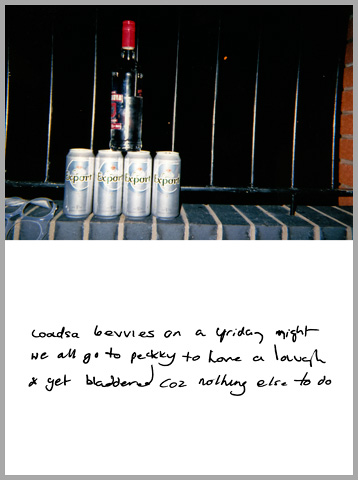 Export Export Export Export
Loadsa bevvies on a friday night
we all go to peckky to have a laugh
& get bladdered coz nothing else to do